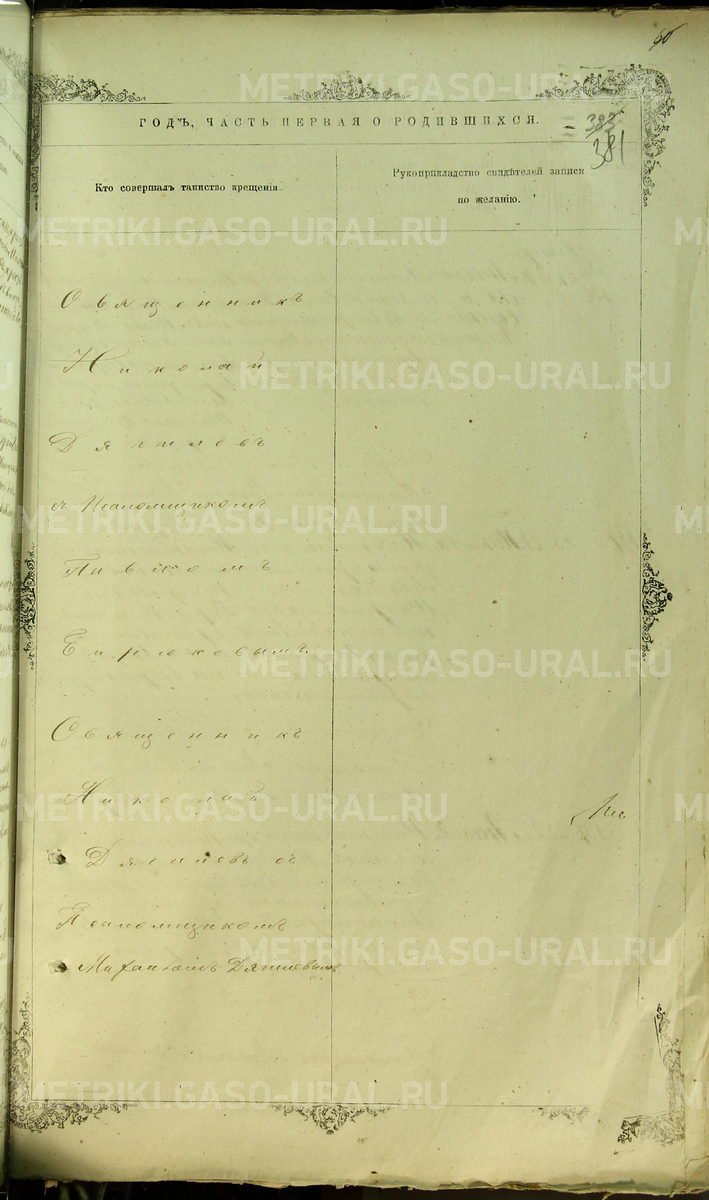 60
ГОДЪ, ЧАСТЬ ПЕРВАЯ О РОДИВШИХСЯ.
381
Кто совершалъ таинство крещенія.
Рукоприкладство свидѣтелей записи
по желанію.
Священникъ
Николай
Дягилевъ
съ Псаломщикомъ
Павломъ
Священникъ
Николай
Дягилевъ съ
Псаломщикомъ
Михаиломъ Дягилевымъ
METRIKI.GASO-URAL.RU